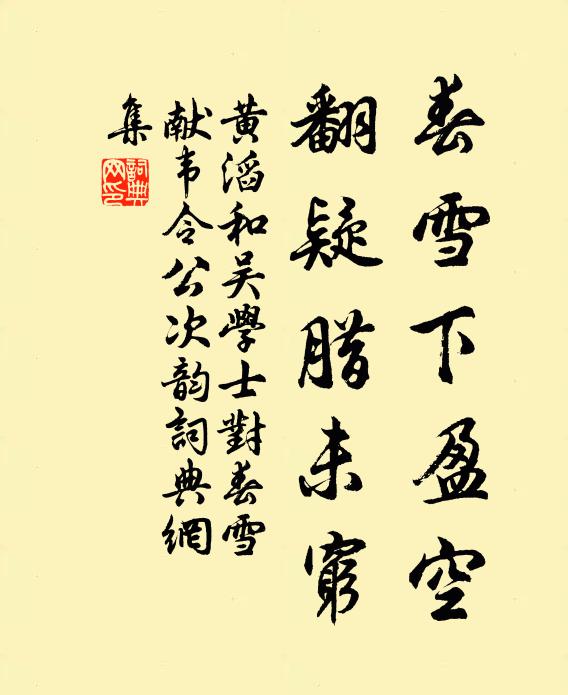 春雪下盈空
翻疑腊未窮
黄滔和吴學士對春雪
献韦令公次韵詞典網
集
詞典網印